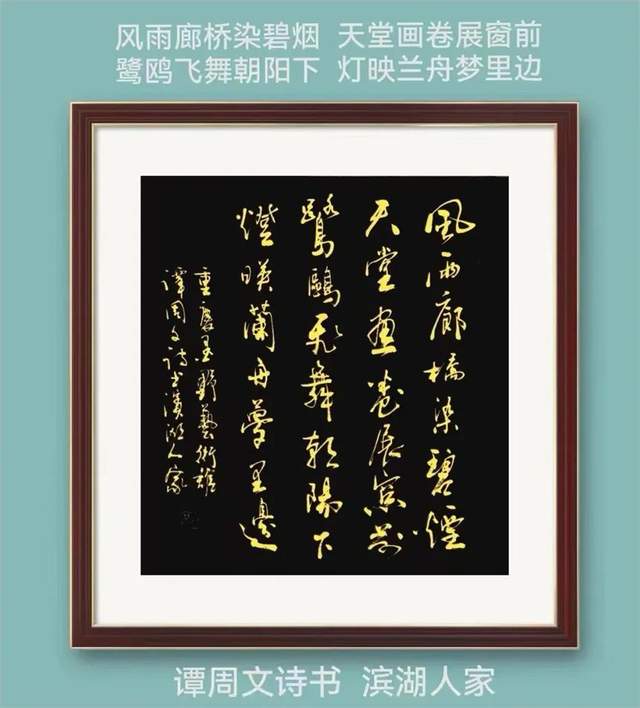 风雨廊桥染碧烟 天堂画卷展窗前
鹭鸥飞舞朝阳下 灯映兰舟梦里边
風雨廊橋染碧煙
天堂画卷展窗前
鷺鷗飛舞朝陽下
燈映蘭舟夢里邊
重庆墨野藝術雄
譚周文詩书濱湖人家
谭周文诗书 滨湖人家